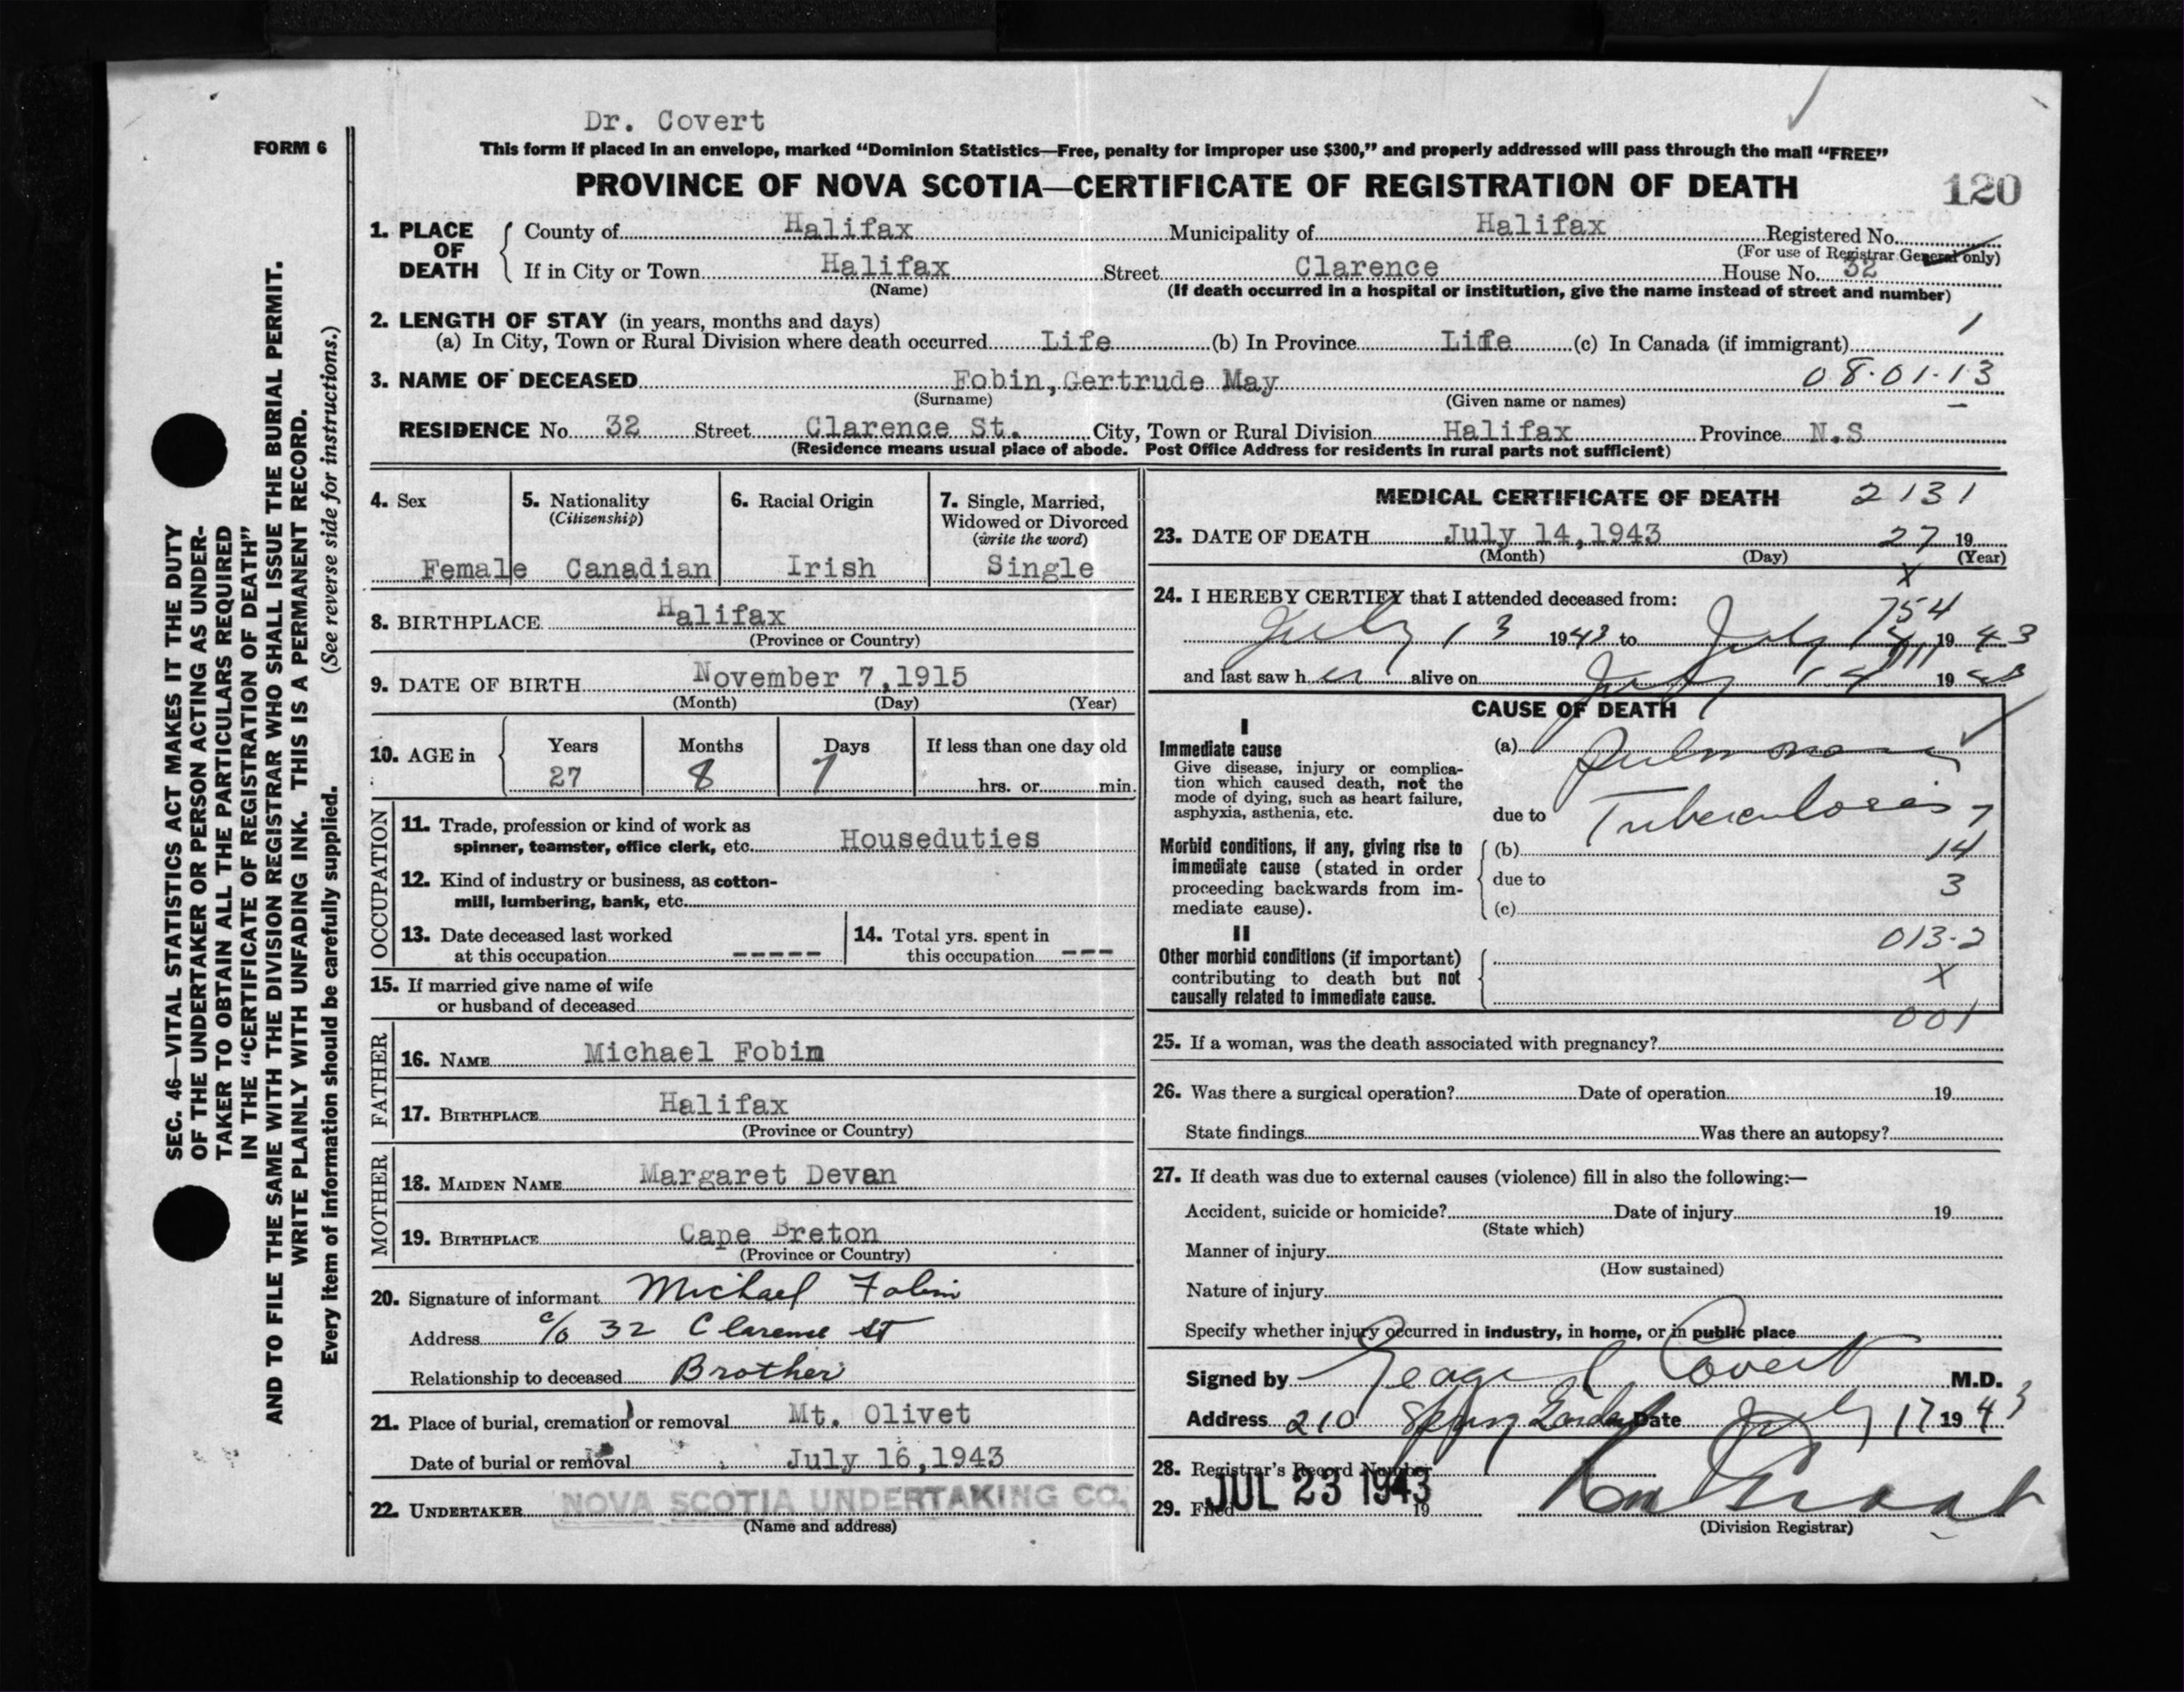 Dr. Covert
FORM 6
This form if placed in an envelope, marked “Dominion Statistics—Free, penalty for improper use $300,” and properly addressed will pass through the mail “FREE”
PROVINCE OF NOVA SCOTIA—CERTIFICATE OF REGISTRATION OF DEATH
120
1. PLACE OF DEATH
County of Halifax Municipality of Halifax Registered No.
(For use of Registrar General only)
If in City or Town Halifax Street Clarence House No. 32
(Name) (If death occurred in a hospital or institution, give the name instead of street and number)
2. LENGTH OF STAY (in years, months and days)
(a) In City, Town or Rural Division where death occurred Life (b) In Province Life (c) In Canada (if immigrant)
3. NAME OF DECEASED Fobin, Gertrude May 08.01.13
(Surname) (Given name or names)
RESIDENCE No. 32 Street Clarence St. City, Town or Rural Division Halifax Province N.S
(Residence means usual place of abode. Post Office Address for residents in rural parts not sufficient)
SEC. 46—VITAL STATISTICS ACT MAKES IT THE DUTY
OF THE UNDERTAKER OR PERSON ACTING AS UNDER-
TAKER TO OBTAIN ALL THE PARTICULARS REQUIRED
IN THE “CERTIFICATE OF REGISTRATION OF DEATH”
AND TO FILE THE SAME WITH THE DIVISION REGISTRAR WHO SHALL ISSUE THE BURIAL PERMIT.
WRITE PLAINLY WITH UNFADING INK. THIS IS A PERMANENT RECORD.
Every item of information should be carefully supplied. (See reverse side for instructions.)
4. Sex
Female
5. Nationality
(Citizenship)
Canadian
6. Racial Origin
Irish
7. Single, Married,
Widowed or Divorced
(write the word)
Single
8. BIRTHPLACE Halifax
(Province or Country)
9. DATE OF BIRTH November 7,1915
(Month) (Day) (Year)
10. AGE in
Years Months Days If less than one day old
27 8 7 hrs. or min.
OCCUPATION
11. Trade, profession or kind of work as
spinner, teamster, office clerk, etc. Houseduties
12. Kind of industry or business, as cotton-
mill, lumbering, bank, etc.
13. Date deceased last worked
at this occupation -----
14. Total yrs. spent in
this occupation ---
15. If married give name of wife
or husband of deceased
FATHER
16. NAME Michael Fobin
17. BIRTHPLACE Halifax
(Province or Country)
MOTHER
18. MAIDEN NAME Margaret Devan
19. BIRTHPLACE Cape Breton
(Province or Country)
20. Signature of informant Michael Fobin
Address c/o 32 Clarence St
Relationship to deceased Brother
21. Place of burial, cremation or removal Mt. Olivet
Date of burial or removal July 16,1943
22. UNDERTAKER NOVA SCOTIA UNDERTAKING CO.
(Name and address)
MEDICAL CERTIFICATE OF DEATH 2131
23. DATE OF DEATH July 14,1943 27 19
(Month) (Day) (Year)
X
24. I HEREBY CERTIFY that I attended deceased from:
754
July 13 1943 to July 14 1943
and last saw her alive on July 14 1943
CAUSE OF DEATH
I
Immediate cause
Give disease, injury or complica-
tion which caused death, not the
mode of dying, such as heart failure,
asphyxia, asthenia, etc.
(a) Pulmonary
due to Tuberculosis 7
Morbid conditions, if any, giving rise to
immediate cause (stated in order
proceeding backwards from im-
mediate cause).
(b) 14
due to 3
(c)
II
Other morbid conditions (if important)
contributing to death but not
causally related to immediate cause.
013-2
X
001
25. If a woman, was the death associated with pregnancy?
26. Was there a surgical operation? Date of operation 19
State findings Was there an autopsy?
27. If death was due to external causes (violence) fill in also the following:—
Accident, suicide or homicide? Date of injury 19
(State which)
Manner of injury
(How sustained)
Nature of injury
Specify whether injury occurred in industry, in home, or in public place
Signed by Covert M.D.
Address 210 Spring Garden Date July 17 1943
28. Registrar's Record Number
29. Filed JUL 23 1943 19
(Division Registrar)